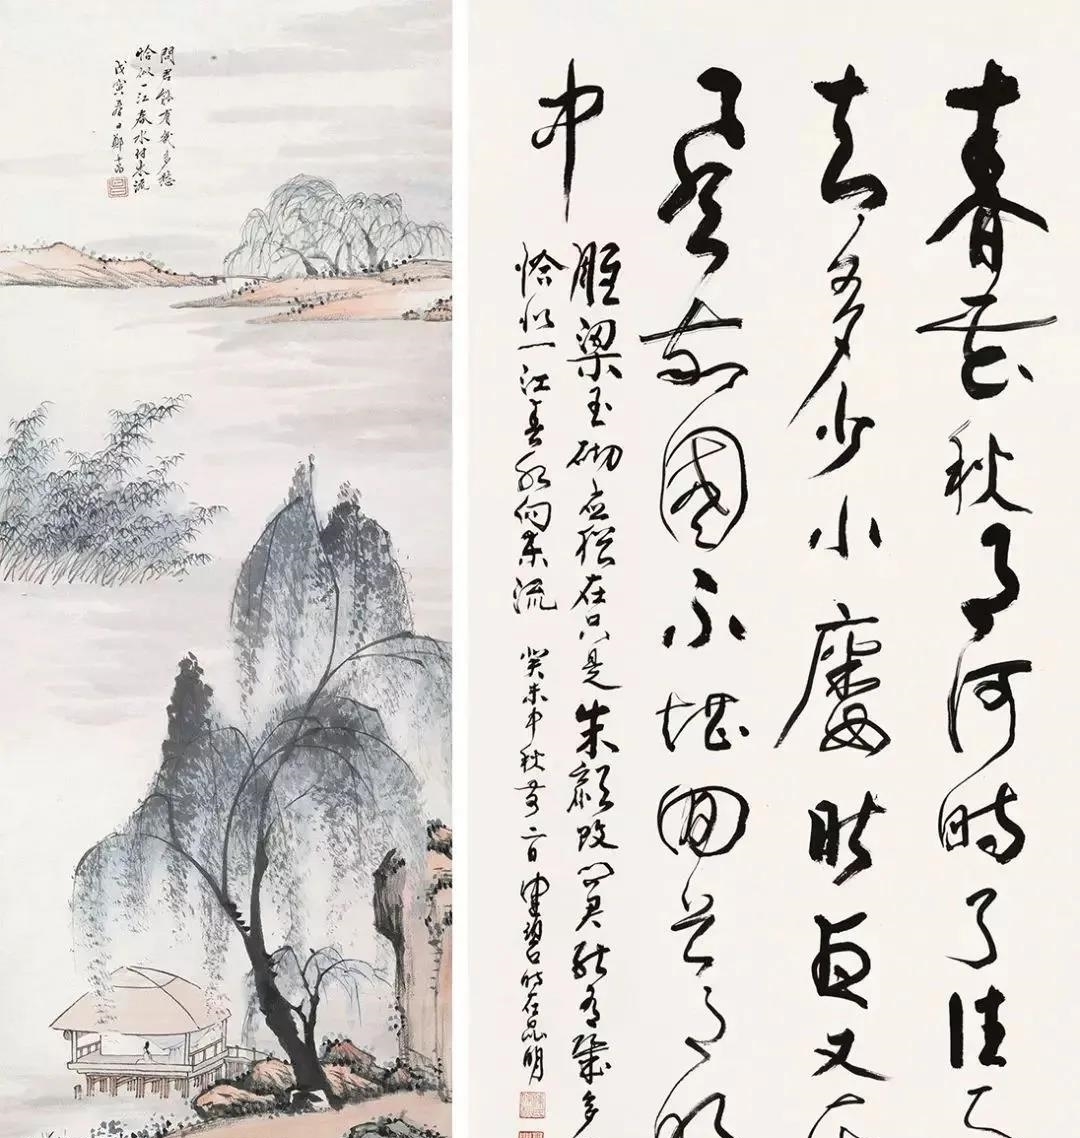 問君能有幾多愁
恰似一江春水付東流
戊寅春日鄭午昌
春花秋月何時了往
知多少小樓昨夜又東
風故國不堪回首月明
中
雕梁玉砌應猶在只是朱顏改問君能有幾多
恰似一江春水向東流 癸未中秋 二日 時在昆明